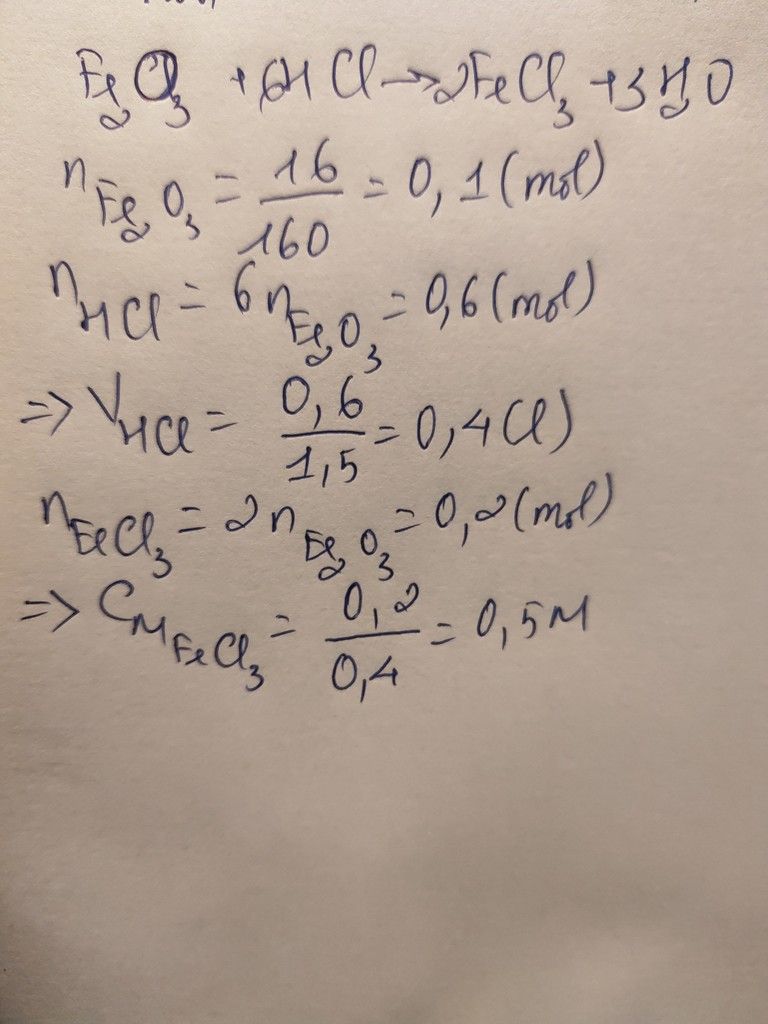 Fe₂O₃ + 6HCl → 2FeCl₃ + 3H₂O
nFe₂O₃ = 16/160 = 0,1 (mol)
nHCl = 6nFe₂O₃ = 0,6 (mol)
=> VHCl = 0,6/1,5 = 0,4 (l)
nFeCl₃ = 2nFe₂O₃ = 0,2 (mol)
=> CMFeCl₃ = 0,2/0,4 = 0,5M